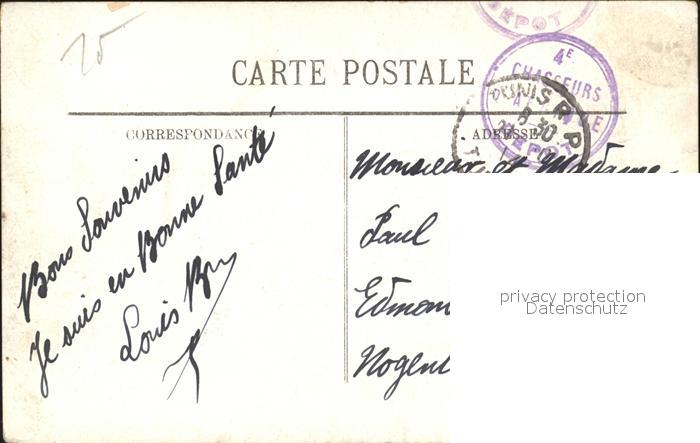 25
DEPOT
4E
CHASSEURS
DEPOT
TUNIS R P
8 30
CARTE POSTALE
CORRESPONDANCE
ADRESSE
Bons Souvenirs
Je suis en Bonne Santé
Louis
Monsieur et Madame
Paul
Edmon
Nogent
privacy protection
Datenschutz